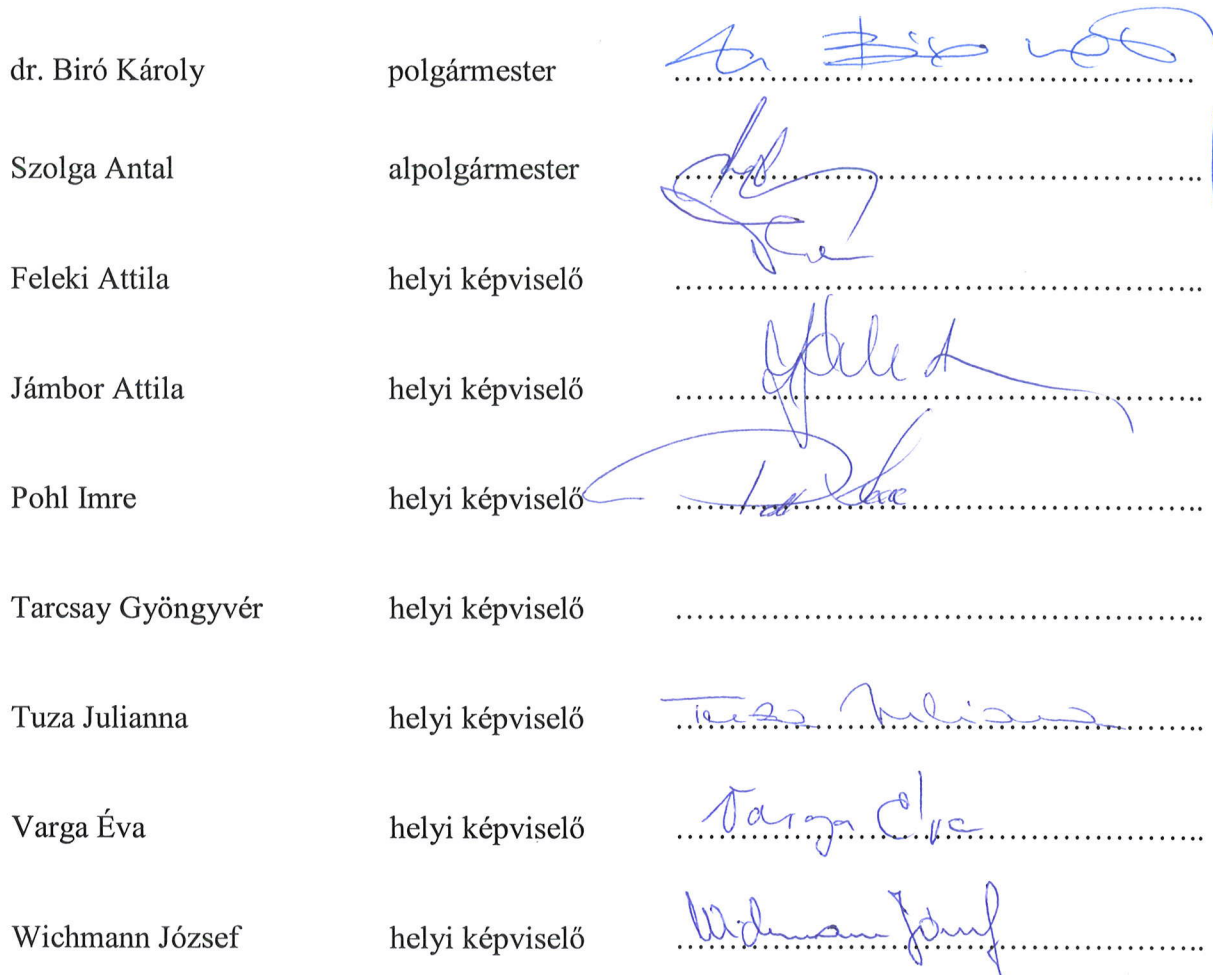 dr. Biró Károly polgármester
Szolga Antal alpolgármester
Feleki Attila helyi képviselő
Jámbor Attila helyi képviselő
Pohl Imre helyi képviselő
Tarcsay Gyöngyvér helyi képviselő
Tuza Julianna helyi képviselő Tuza Julianna
Varga Éva helyi képviselő Varga Éva
Wichmann József helyi képviselő Wichmann József